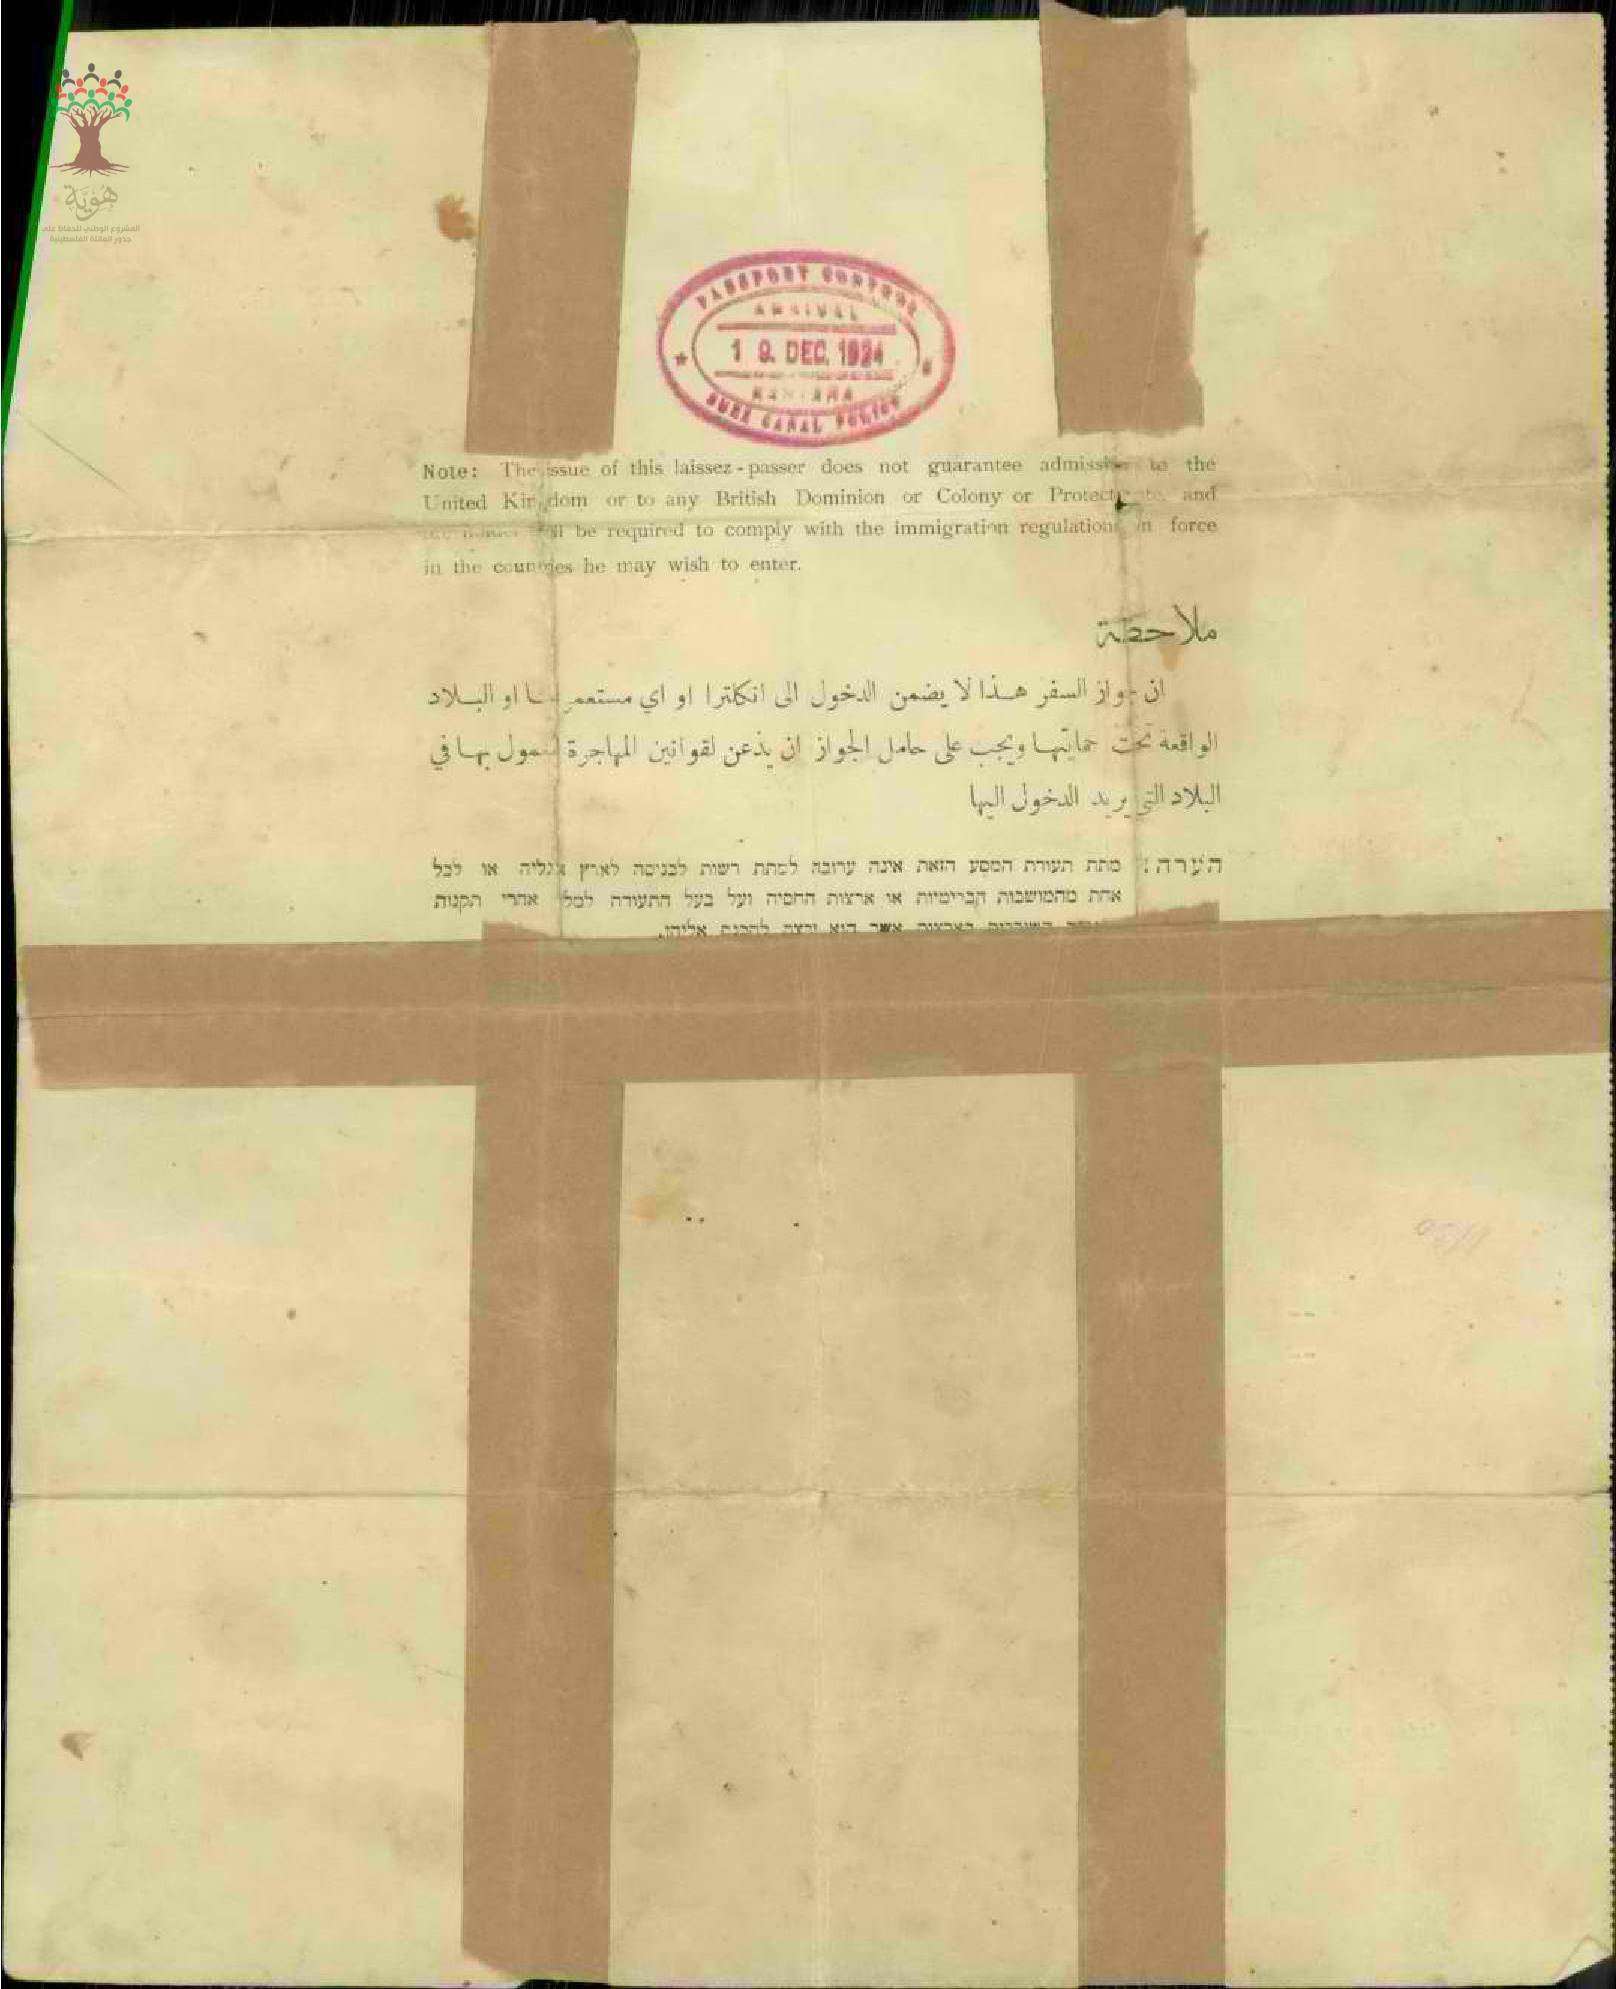 هُوِيَّة
المشروع الوطني للحفاظ على
جذور العائلة الفلسطينية
PASSPORT CONTROL
ARRIVAL
19. DEC. 1924
KANTARA
SUEZ CANAL POLICE
Note: The issue of this laissez-passer does not guarantee admission to the
United Kingdom or to any British Dominion or Colony or Protectorate, and
be required to comply with the immigration regulations in force
in the countries he may wish to enter.
ملاحظة
ان جواز السفر هذا لا يضمن الدخول الى انكلترا او اي مستعمراتها او البلاد
الواقعة تحت حمايتها ويجب على حامل الجواز ان يذعن لقوانين المهاجرة المعمول بها في
البلاد التي يريد الدخول اليها
הערה: מתת תעודת המסע הזאת אינה ערובה למתת רשות לכניסה לארץ אנגליה או לכל
אחת מהמושבות הבריטיות או ארצות החסיה ועל בעל התעודה למלא אחרי תקנות
בארצות אשר הוא ירצה להכנס אליהן.